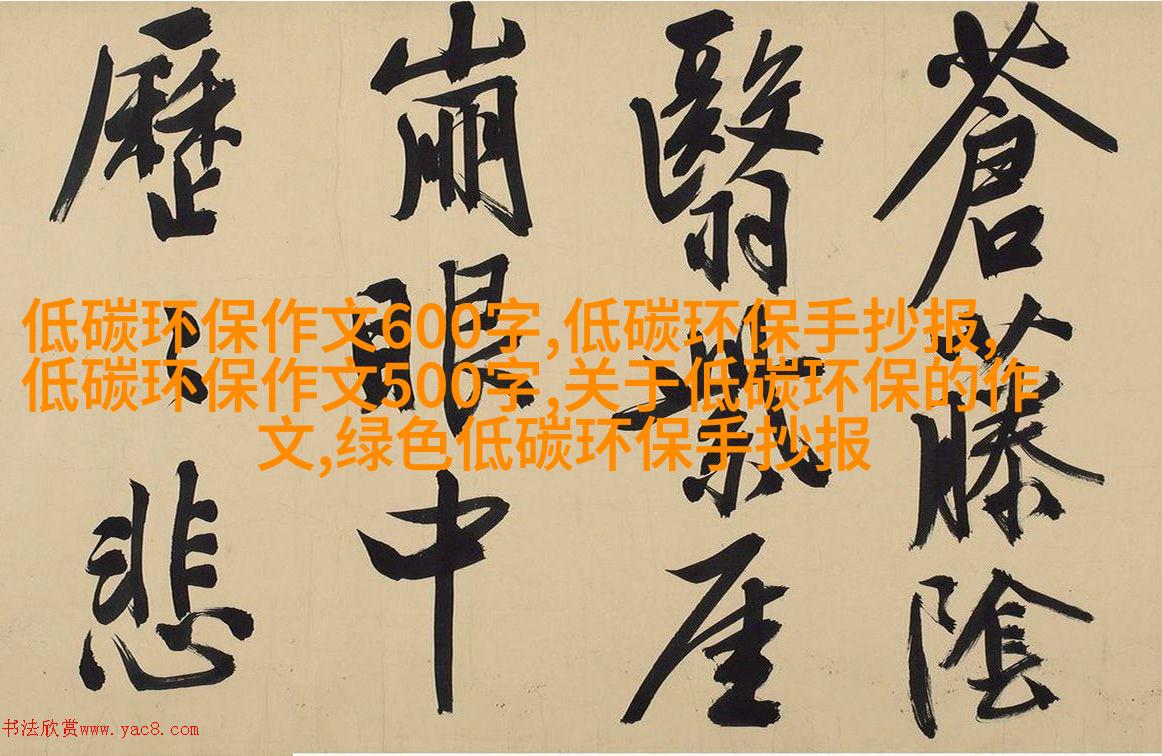 蒼藤陰
翳厓
崩眼中
歷悲
低碳环保作文600字,低碳环保手抄报,
低碳环保作文500字,关于低碳环保的作
文,绿色低碳环保手抄报
书法欣赏www.yac8.com